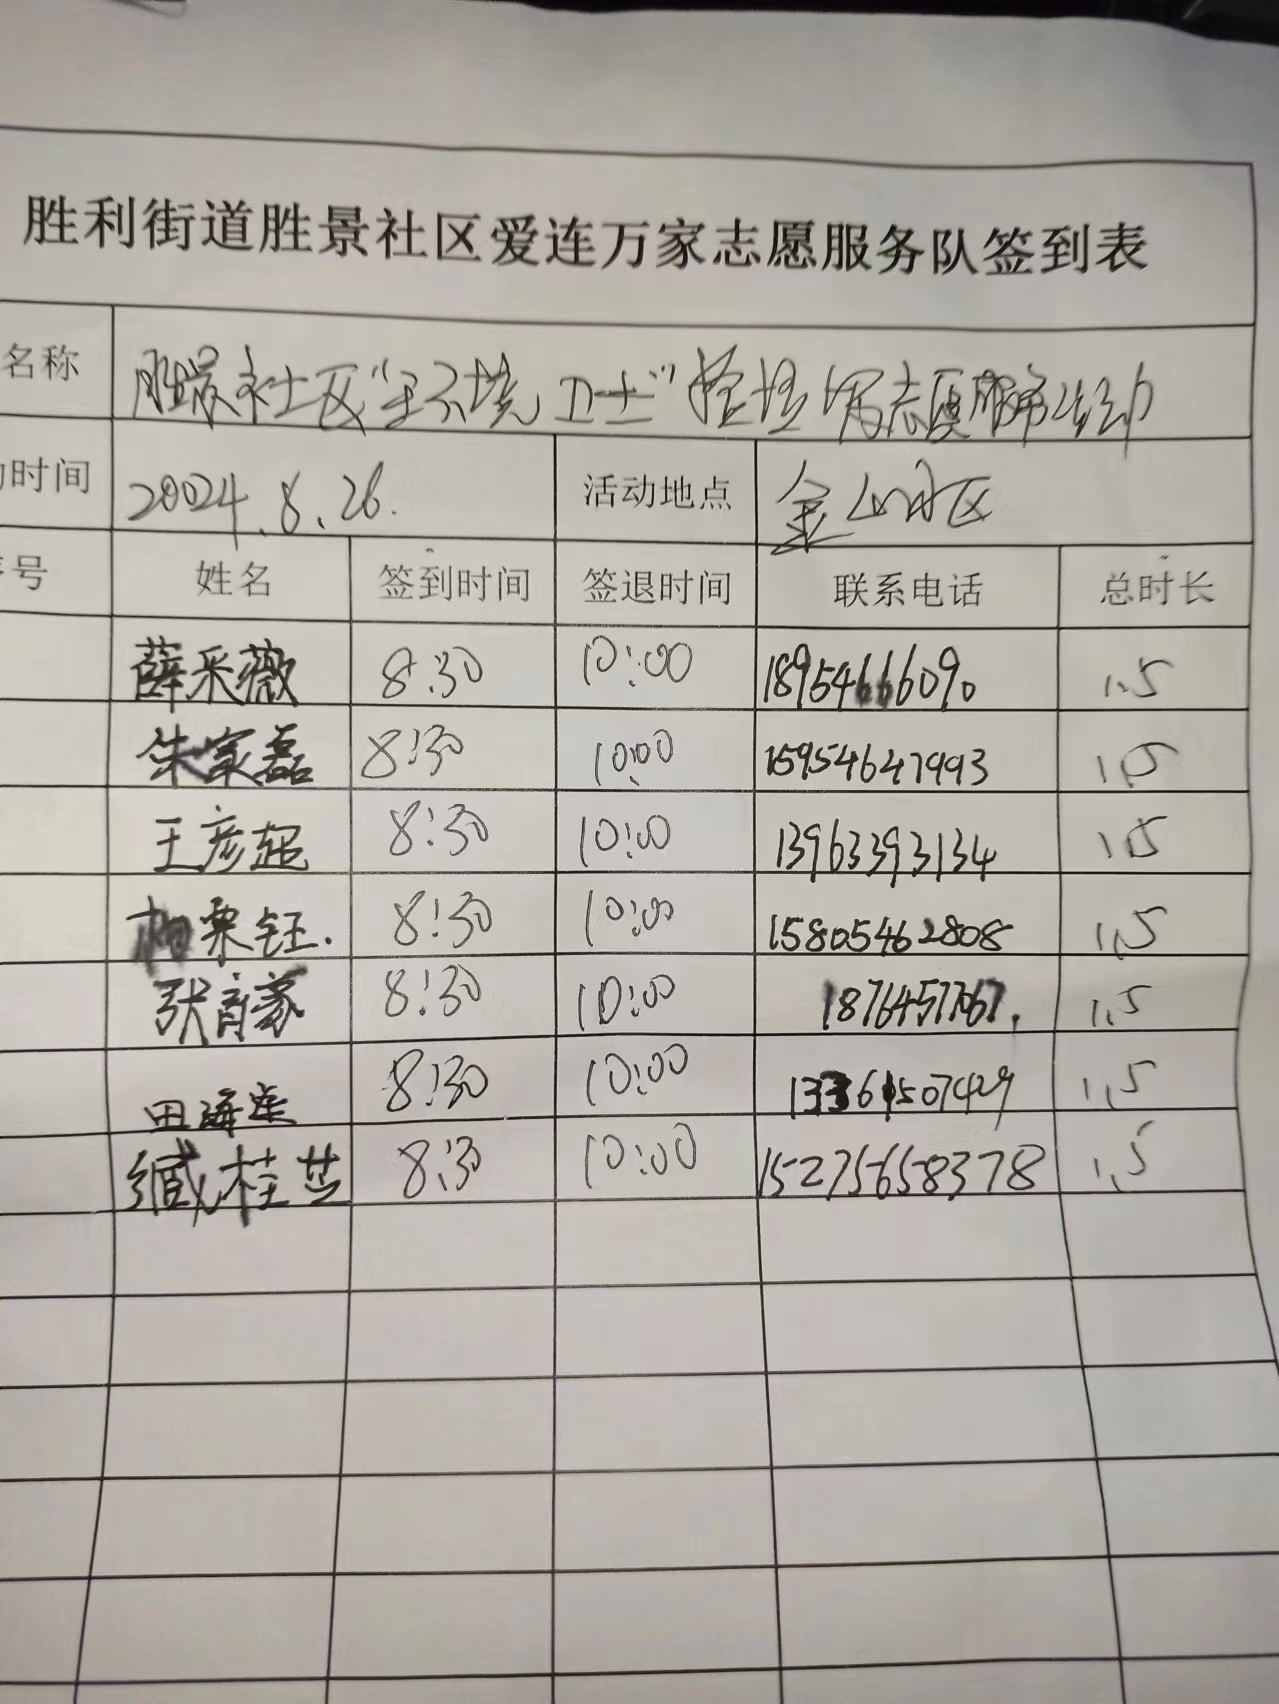 胜利街道胜景社区爱连万家志愿服务队签到表
名称 胜景社区“环境卫士”捡垃圾志愿服务活动
动时间 20024.8.26. 活动地点 金山小区
序号 姓名 签到时间 签退时间 联系电话 总时长
薛采薇 8:30 10:00 18954666090 1.5
朱家磊 8:30 10:00 15954647993 1.5
王彦超 8:30 10:00 13963393134 1.5
柏栗钰. 8:30 10:00 15805462808 1.5
张育豪 8:30 10:00 1.5
田海莲 8:30 10:00 13361507429 1.5
臧桂芝 8:30 10:00 15275658378 1.5